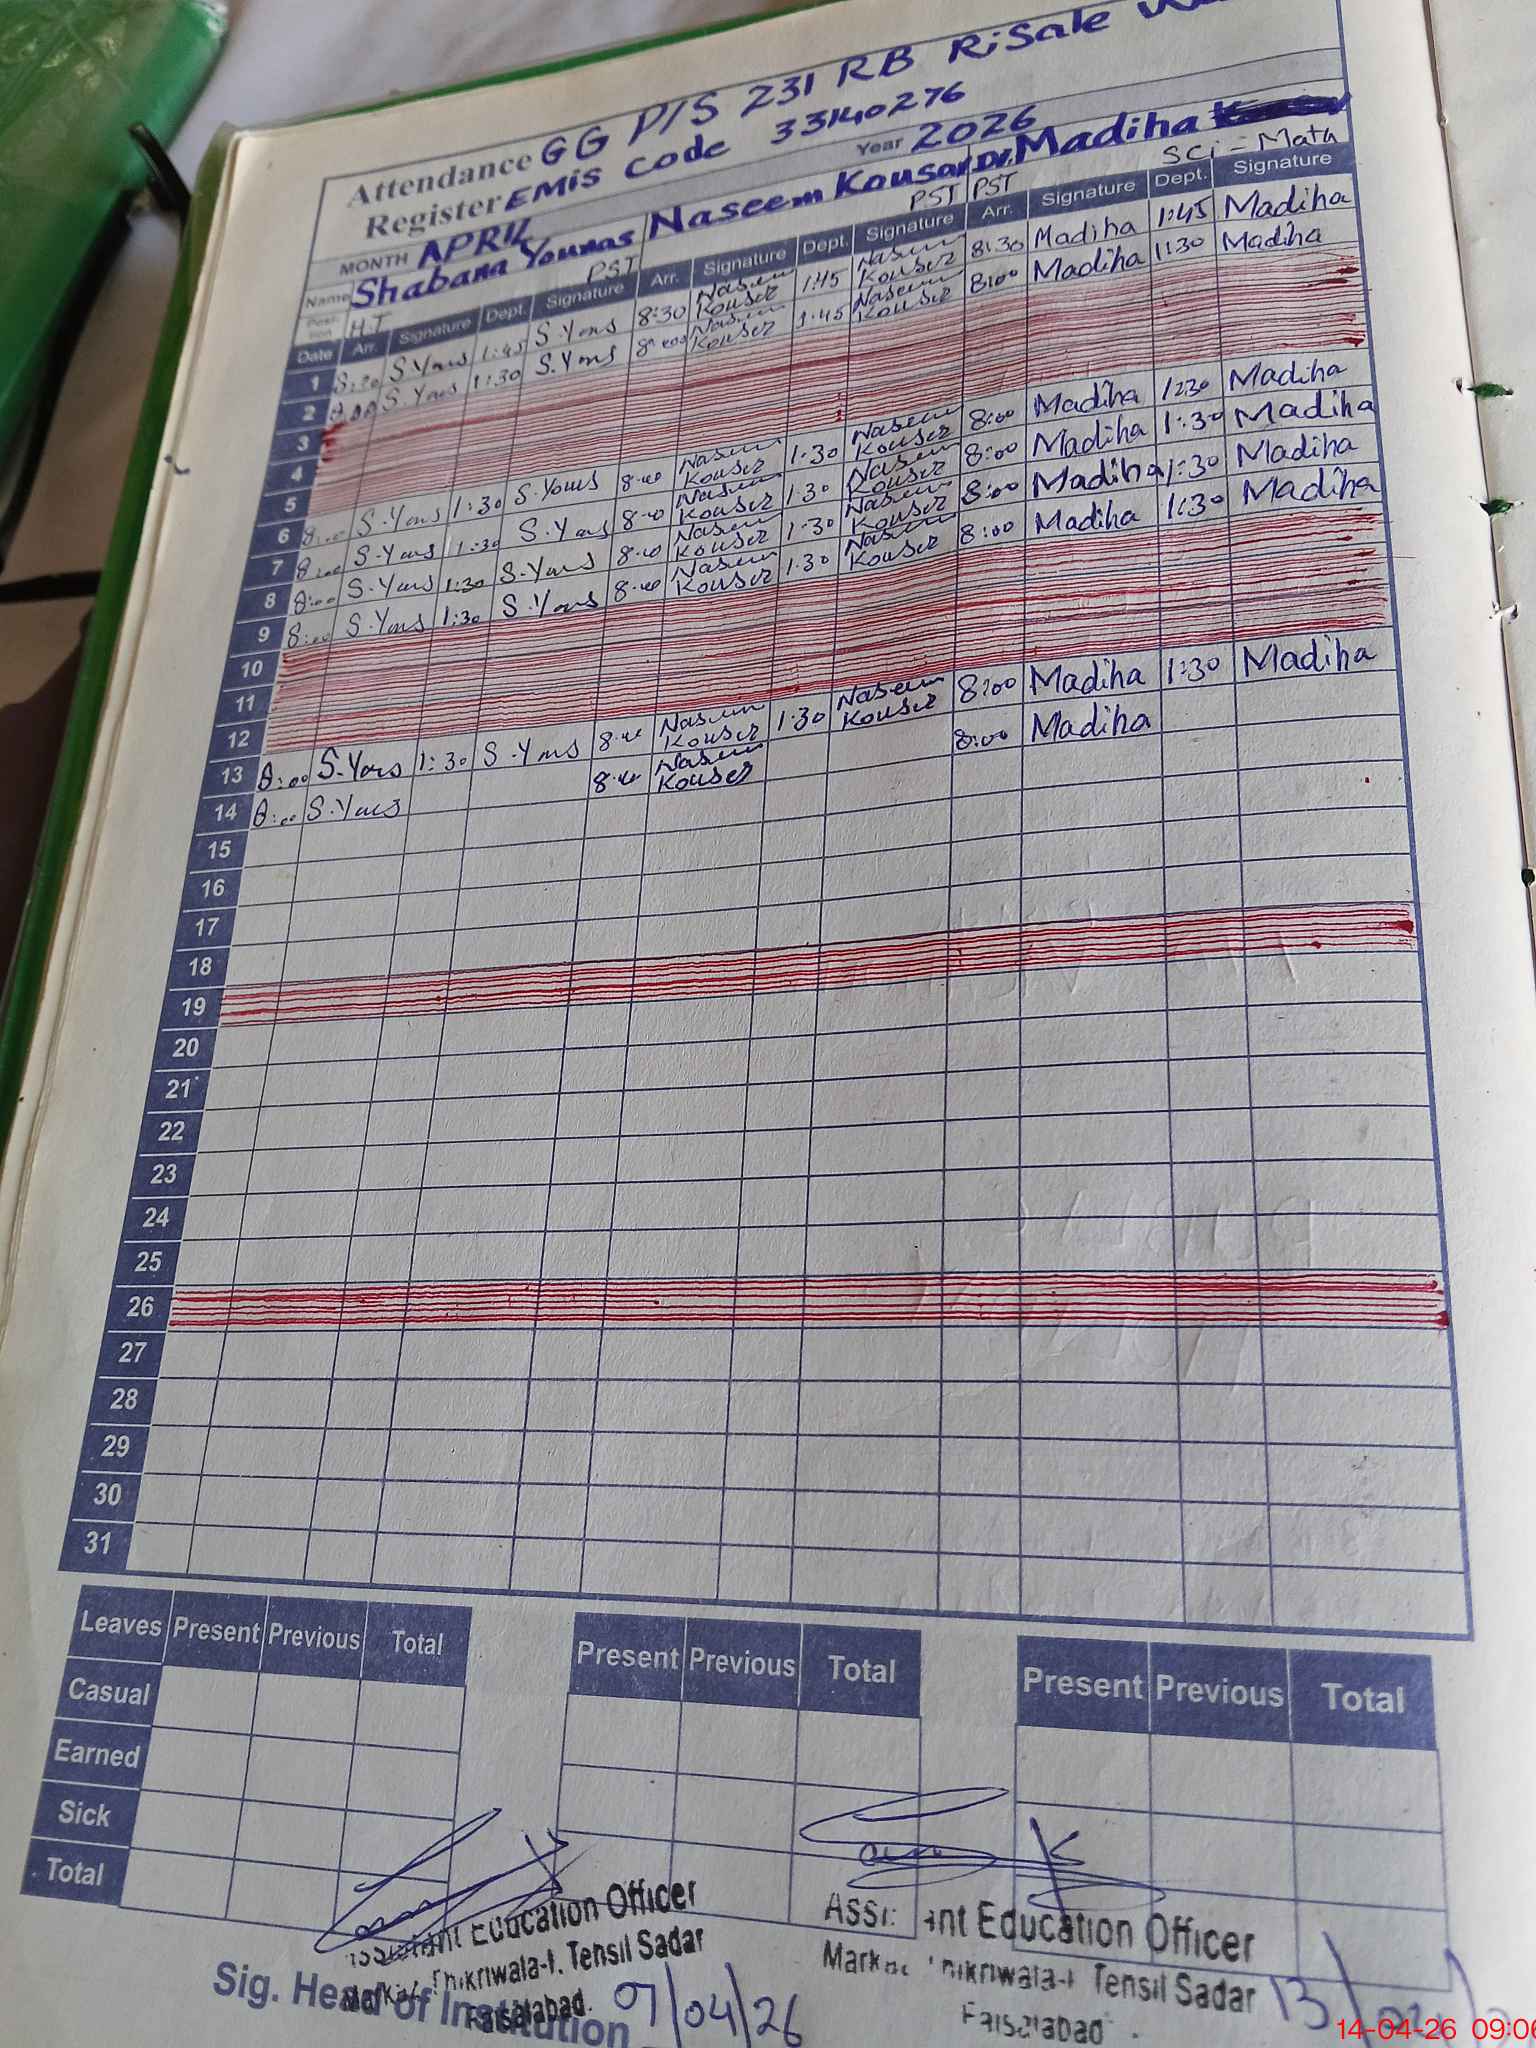 Attendance GG P/S 231 RB RiSale
Register EMIS Code 33140276
MONTH APRIL Year 2026
Name Shabana Younas Naseem Kousar Dr. Madiha
Position H.T PST PST PST Sci - Math
Date Arr. Signature Dept. Signature Arr. Signature Dept. Signature Arr. Signature Dept. Signature
1 8:30 S.Yons 1:45 S.Yons 8:30 Naseem Kouser 1:45 Naseem Kouser 8:30 Madiha 1:45 Madiha
2 8:00 S.Yons 1:30 S.Yons 8:00 Naseem Kouser 1:45 Naseem Kouser 8:00 Madiha 1:30 Madiha
3
4
5
6 8:00 S.Yons 1:30 S.Yons 8:00 Naseem Kouser 1:30 Naseem Kouser 8:00 Madiha 1:30 Madiha
7 8:00 S.Yons 1:30 S.Yons 8:00 Naseem Kouser 1:30 Naseem Kouser 8:00 Madiha 1:30 Madiha
8 8:00 S.Yons 1:30 S.Yons 8:00 Naseem Kouser 1:30 Naseem Kouser 8:00 Madiha 1:30 Madiha
9 8:00 S.Yons 1:30 S.Yons 8:00 Naseem Kouser 1:30 Naseem Kouser 8:00 Madiha 1:30 Madiha
10
11
12
13 8:00 S.Yons 1:30 S.Yons 8:00 Naseem Kouser 1:30 Naseem Kouser 8:00 Madiha 1:30 Madiha
14 8:00 S.Yons 8:00 Naseem Kouser 8:00 Madiha
15
16
17
18
19
20
21
22
23
24
25
26
27
28
29
30
31
Leaves Present Previous Total Present Previous Total Present Previous Total
Casual
Earned
Sick
Total
Assistant Education Officer
Markaz Thikriwala-I, Tehsil Sadar
Faisalabad.
Sig. Head of Institution
07/04/26
Assistant Education Officer
Markaz Thikriwala-I, Tehsil Sadar
Faisalabad
13/04/
14-04-26 09:06